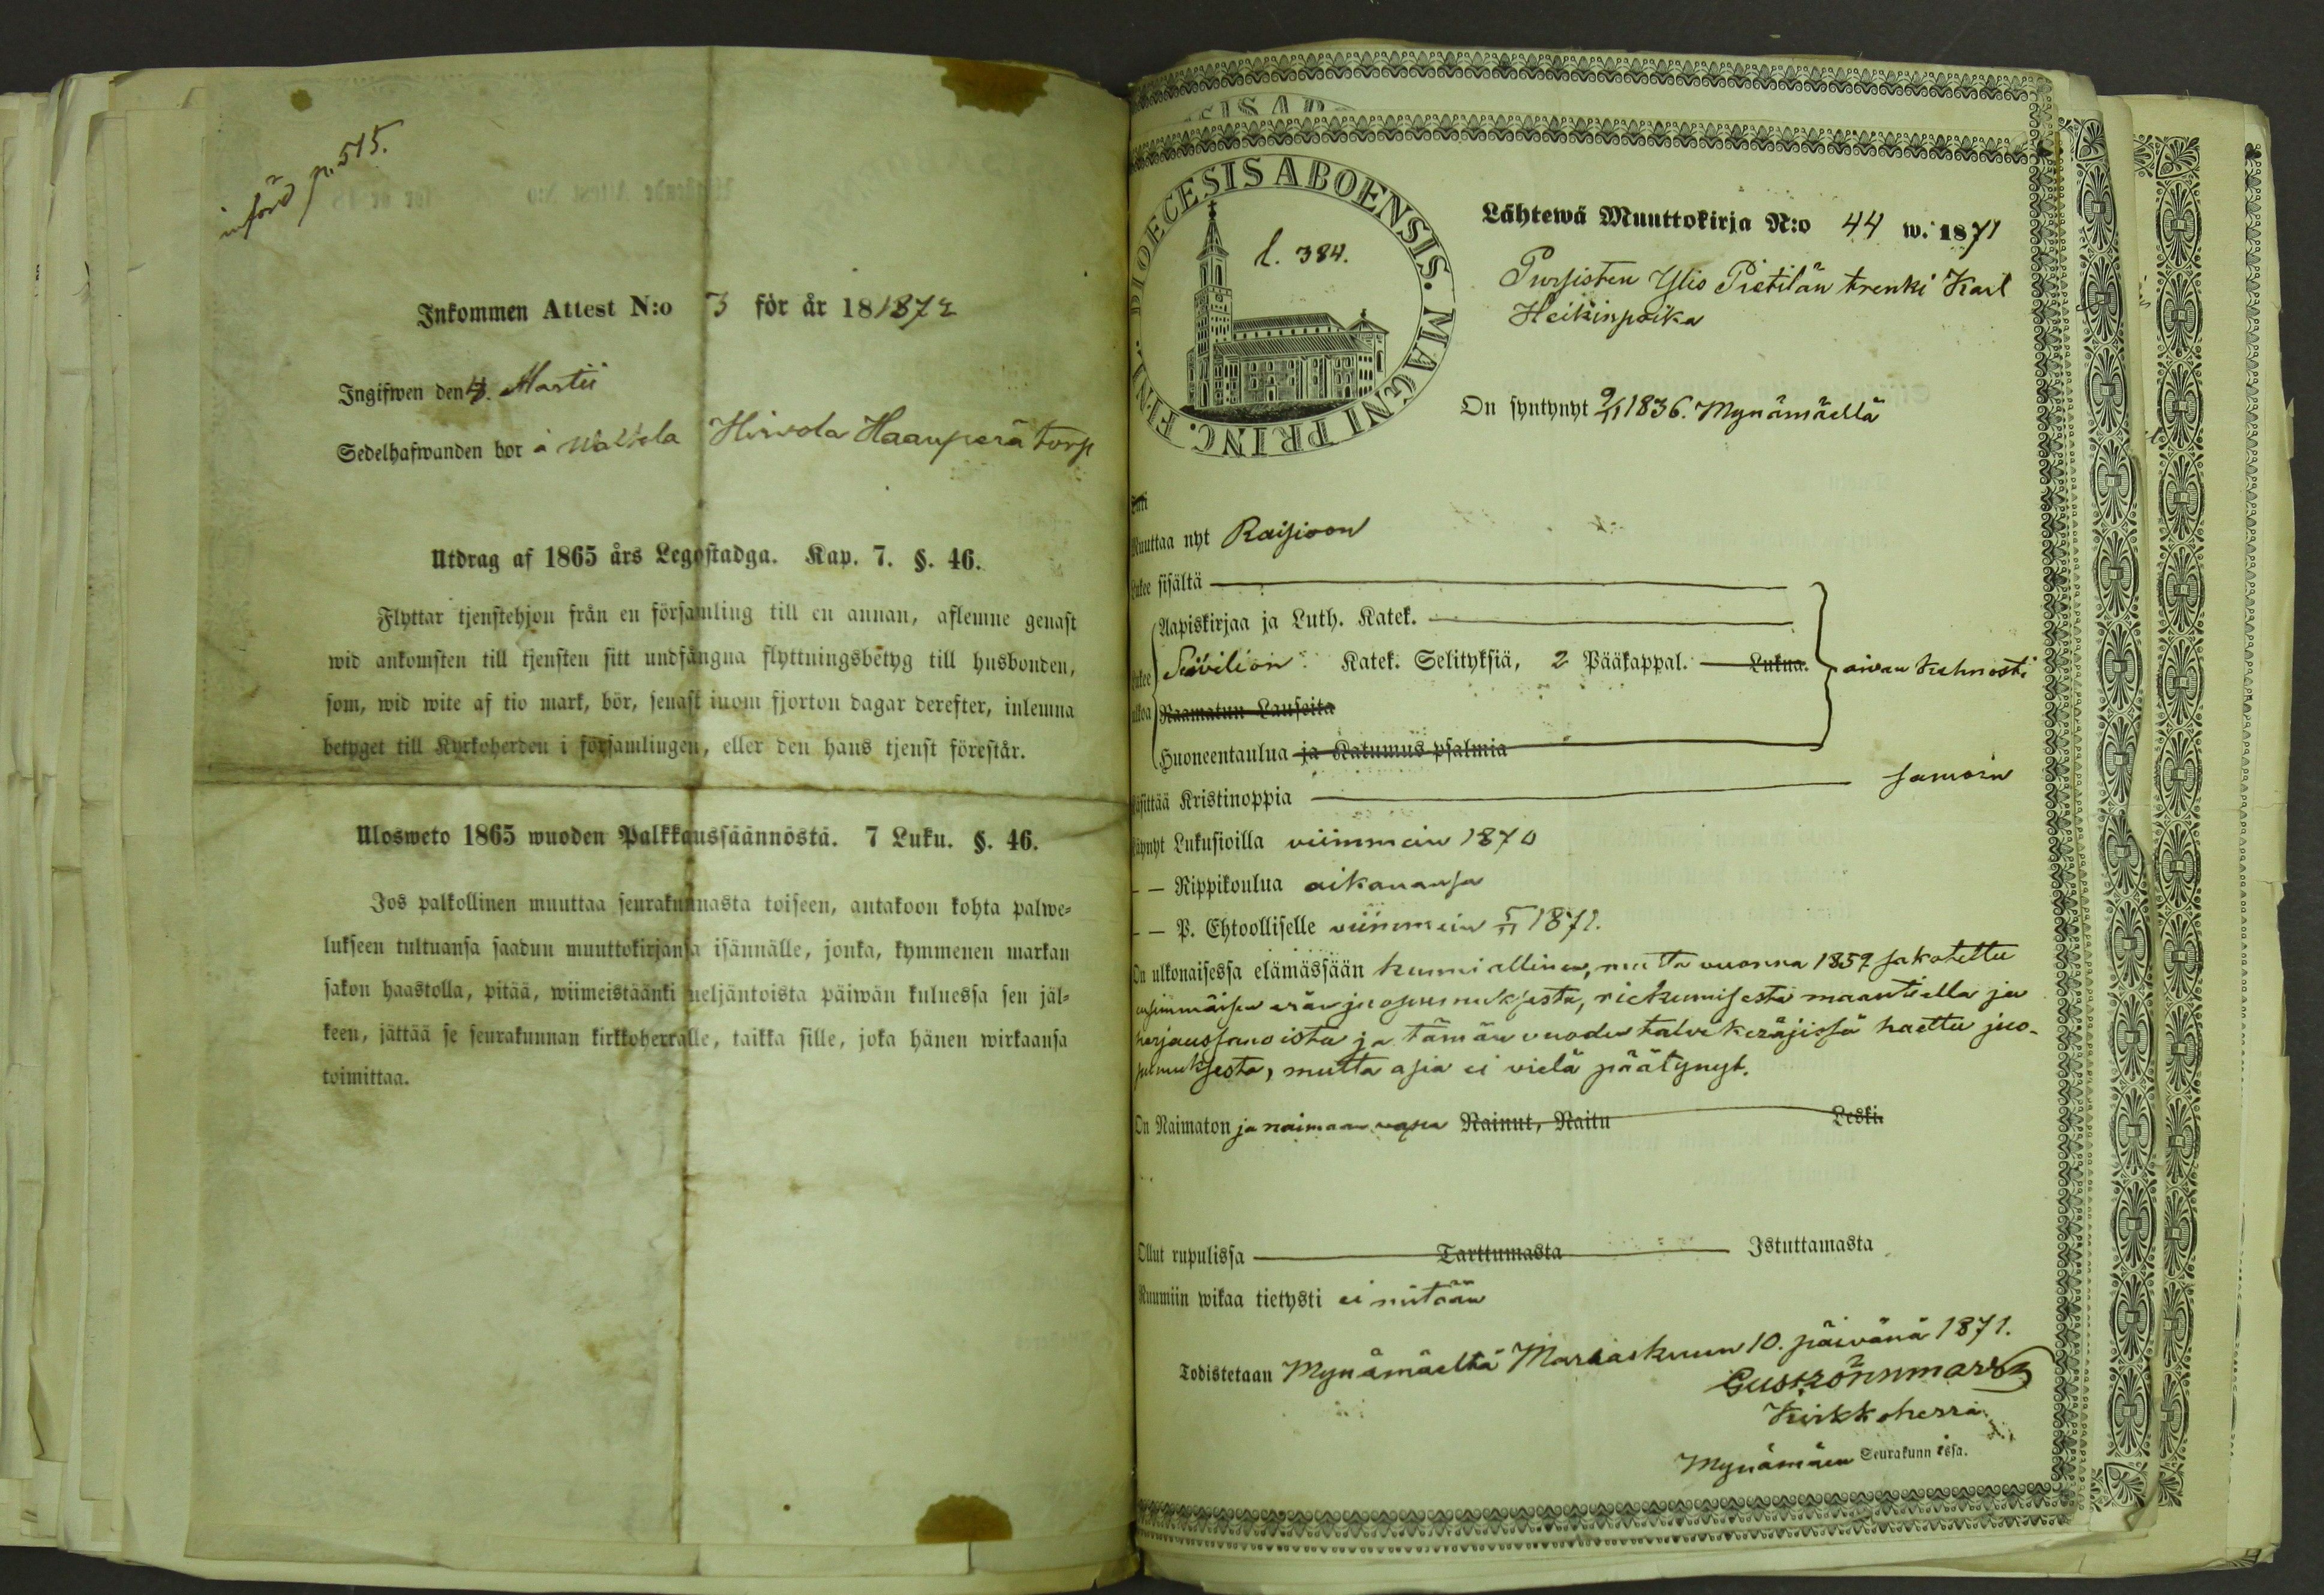 införd p. 515.
Inkommen Attest N:o 3 för år 181872
Ingifwen den 4. Martii
Sedelhafwanden bor å Hirvola Haanperä torp
Utdrag af 1865 års Legostadga. Kap. 7. §. 46.
Flyttar tjenstehjon från en församling till en annan, aflemne genast
wid ankomsten till tjensten sitt undfångna flyttningsbetyg till husbonden,
som, wid wite af tio mark, bör, senast inom fjorton dagar derefter, inlemna
betyget till Kyrkoherden i församlingen, eller den hans tjenst förestår.
Ulosweto 1865 wuoden Palkkaussäännöstä. 7 Luku. §. 46.
Jos palkollinen muuttaa seurakunnasta toiseen, antakoon kohta palwe-
lukseen tultuansa saadun muuttokirjansa isännälle, jonka, kymmenen markan
sakon haastolla, pitää, wiimeistäänki neljäntoista päiwän kuluessa sen jäl-
keen, jättää se seurakunnan kirkkoherralle, taikka sille, joka hänen wirkaansa
toimittaa.
DIOECESIS ABOENSIS. MAGNI PRINC. FINL.
l. 384.
Lähtewä Muuttokirja N:o 44 w. 1871
Pursisten Ylis Pietilän trenki Karl
Heikinpoika
On syntynyt 9/11 1836. Mynämäellä
Muuttaa nyt Raisioon
Lukee sisältä
Aapiskirjaa ja Luth. Katek.
Lukee Sevilion Katek. Selityksiä, 2 Pääkappal. Lukua. aivan kehnosti
ulkoa Raamatun Lauseita
Huoneentaulua ja Katumus psalmia
Käsittää Kristinoppia samoin
Käynyt Lukusioilla viimmein 1870
— — Rippikoulua aikanansa
— — P. Ehtoolliselle viimmein 5/11 1871.
On ulkonaisessa elämässään kunniallinen, mutta vuonna 1859 sakotettu
ensimmäisen erän juopumuksesta, riekumisesta maantiella ja
herjaussanoista ja tämän vuoden talvikeräjissä haettu juo-
pumuksesta, mutta asia ei vielä päätynyt.
On Naimaton ja naimaan vapaa Nainut, Naitu Leski.
Ollut rupulissa Tarttumasta Istuttamasta
Ruumiin wikaa tietysti ei mitään
Todistetaan Mynämäeltä Marraskuun 10. päivänä 1871.
Gust. Rönnmark
Kirkkoherra
Mynämäen Seurakunnissa.